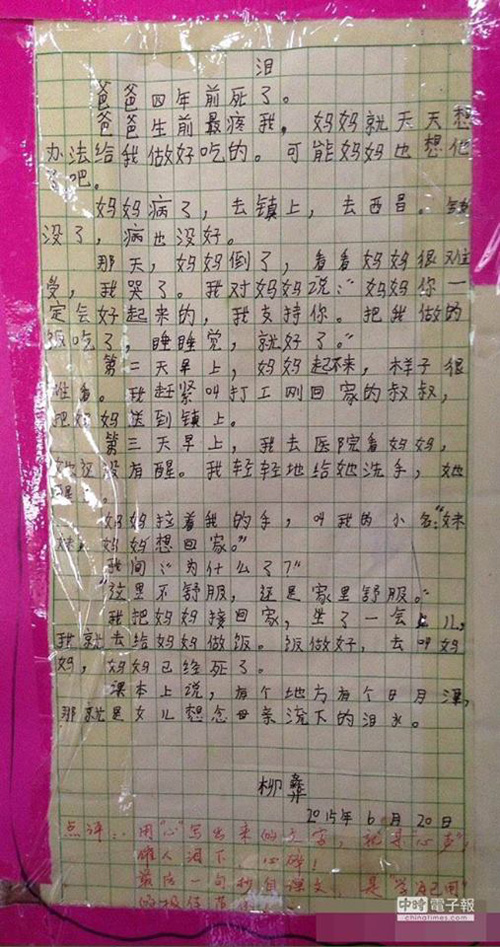 泪
爸爸四年前死了。
爸爸生前最疼我，妈妈就天天想
办法给我做好吃的。可能妈妈也想他
了吧。
妈妈病了，去镇上，去西昌。钱
没了，病也没好。
那天，妈妈倒了，看看妈妈很难
受，我哭了。我对妈妈说：“妈妈你一
定会好起来的，我支持你。把我做的
饭吃了，睡睡觉，就好了。”
第二天早上，妈妈起不来，样子很
难看。我赶紧叫打工刚回家的叔叔，
把妈妈送到镇上。
第三天早上，我去医院看妈妈，
她还没有醒。我轻轻地给她洗手，她
醒了。
妈妈拉着我的手，叫我的小名：“妹
妹，妈妈想回家。”
我问：“为什么了？”
“这里不舒服，还是家里舒服。”
我把妈妈接回家，坐了一会儿，
我就去给妈妈做饭。饭做好，去叫妈
妈，妈妈已经死了。
课本上说，有个地方有个日月潭，
那就是女儿想念母亲流下的泪水。
柳彝
2015年6月20日
点评：用“心”写出来的文字，就是“心声”，
催人泪下 心碎！
最后一句抄自课文，是“学为己用”
的极佳
中時電子報
chinatimes.com